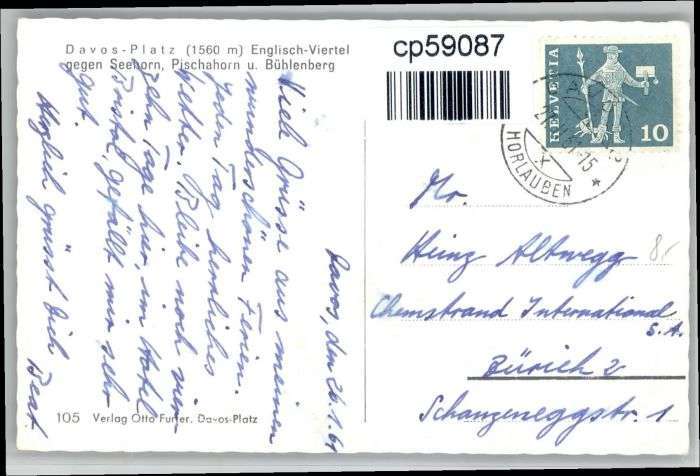 Davos-Platz (1560 m) Englisch-Viertel
gegen Seehorn, Pischahorn u. Bühlenberg
cp59087
HELVETIA
10
HORLAUBEN
Davos, den 26.1.61
Viele Grüsse aus meinen
wunderschönen Ferien.
Jeden Tag herrliches
Wetter. Bleibe noch vier-
zehn Tage hier, im Hotel
Bristol, gefällt mir sehr
gut.
Herzlich grüsst Dich
Beat.
Mr.
Heinz Altwegg
8.-
Chemstrand International
S.A.
Zürich 2
Schanzeneggstr. 1
105 Verlag Otto Furter, Davos-Platz